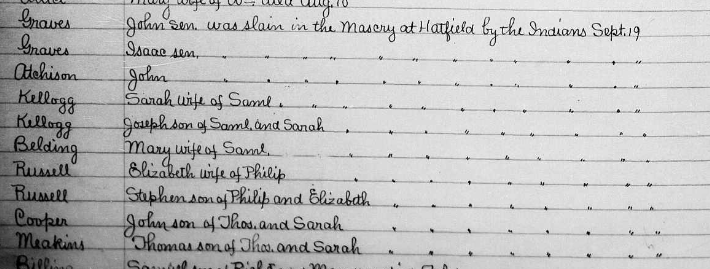 Mary wife of Wm died Aug. 10
Graves John sen. was slain in the Mascry at Hatfield by the Indians Sept. 19
Graves Isaac sen. " " " " " " " " "
Atchison John " " " " " " " " " "
Kellogg Sarah wife of Saml. " " " " " " " " "
Kellogg Joseph son of Saml. and Sarah " " " " " " " "
Belding Mary wife of Saml. " " " " " " " "
Russell Elizabeth wife of Philip " " " " " " " "
Russell Stephen son of Philip and Elizabeth " " " " " " "
Cooper John son of Thos. and Sarah " " " " " " " "
Meakins Thomas son of Thos. and Sarah " " " " " " " "